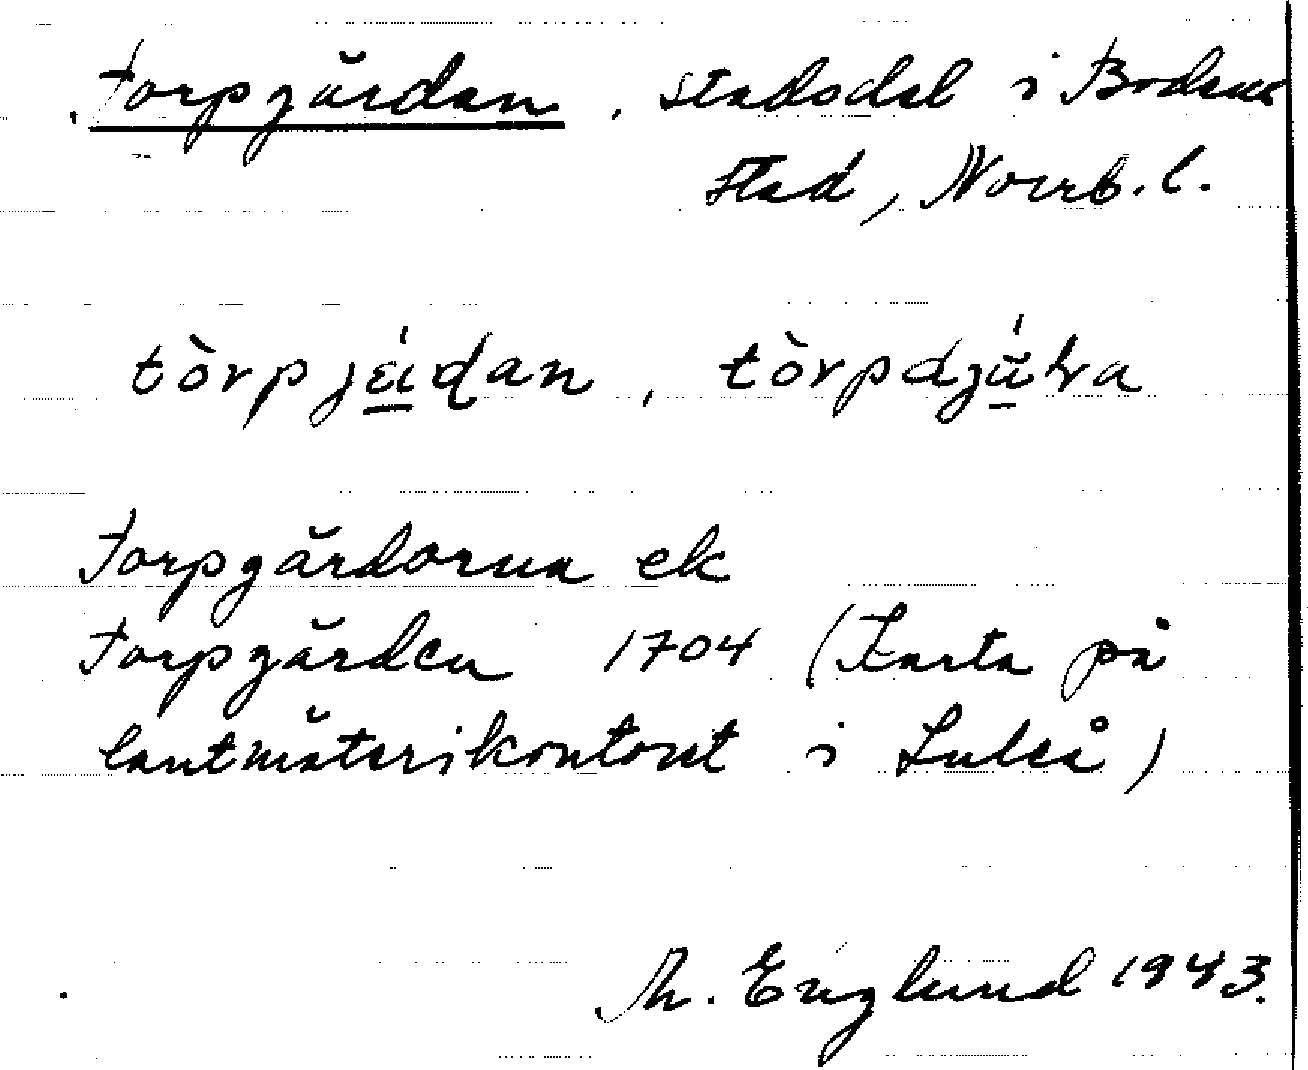 Torpgärdan, stadsdel i Bodens
stad, Norrb. l.
tòrpjä́ḍan, tòrpdjä́ɫva
Torpgärdorna ek
Torpgärden 1704 (Karta på
lantmäterikontoret i Luleå)
Th. Englund 1943.